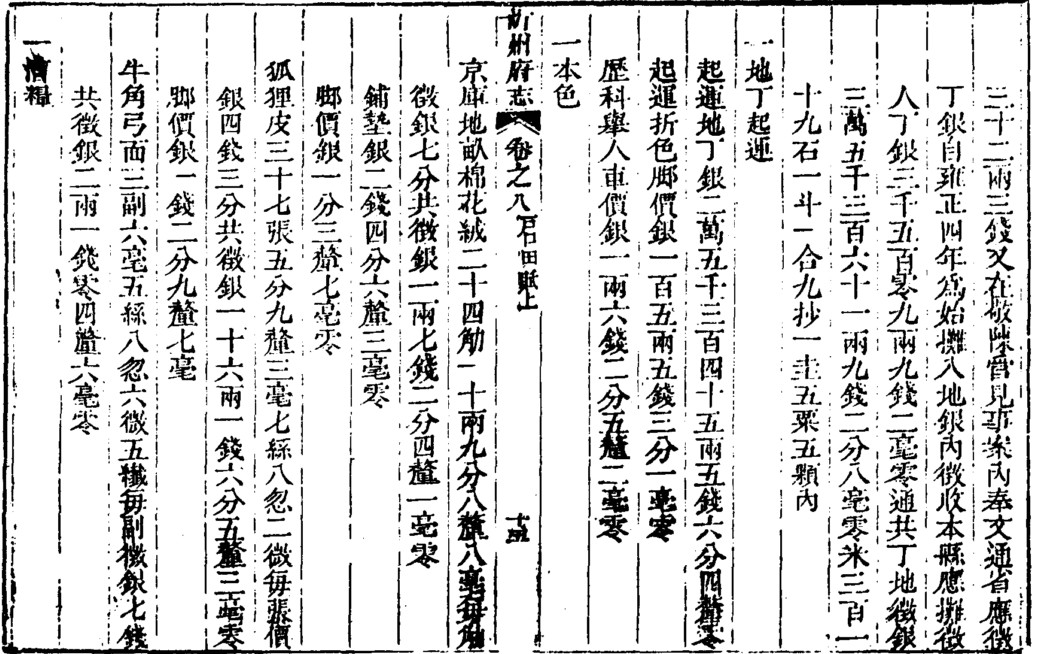 三十二兩三錢又在敬陳管見事案內奉文通省應徵
丁銀自雍正四年為始攤入地銀內徵收本縣應攤徵
人丁銀三千五百零九兩九錢二毫零通共丁地徵銀
三萬五千三百六十一兩九錢二分八毫零米三百一
十九石一斗一合九抄一圭五粟五顆內
一地丁起運
起運地丁銀二萬五千三百四十五兩五錢六分四釐零
起運折色腳價銀一百五兩五錢三分一毫零
歷科舉人車價銀一兩六錢二分五釐二毫零
一本色
沂州府志 卷之八 田賦上
京庫地畝棉花絨二十四觔一十兩九分八釐八毫每觔
徵銀七分共徵銀一兩七錢二分四釐一毫零
鋪墊銀二錢四分六釐三毫零
腳價銀一分三釐七毫零
狐狸皮三十七張五分九釐三毫七絲八忽二微每張價
銀四錢三分共徵銀一十六兩一錢六分五釐三毫零
腳價銀一錢二分九釐七毫
牛角弓面三副六毫五絲八忽六微五纖每副徵銀七錢
共徵銀二兩一錢零四釐六毫零
一漕糧